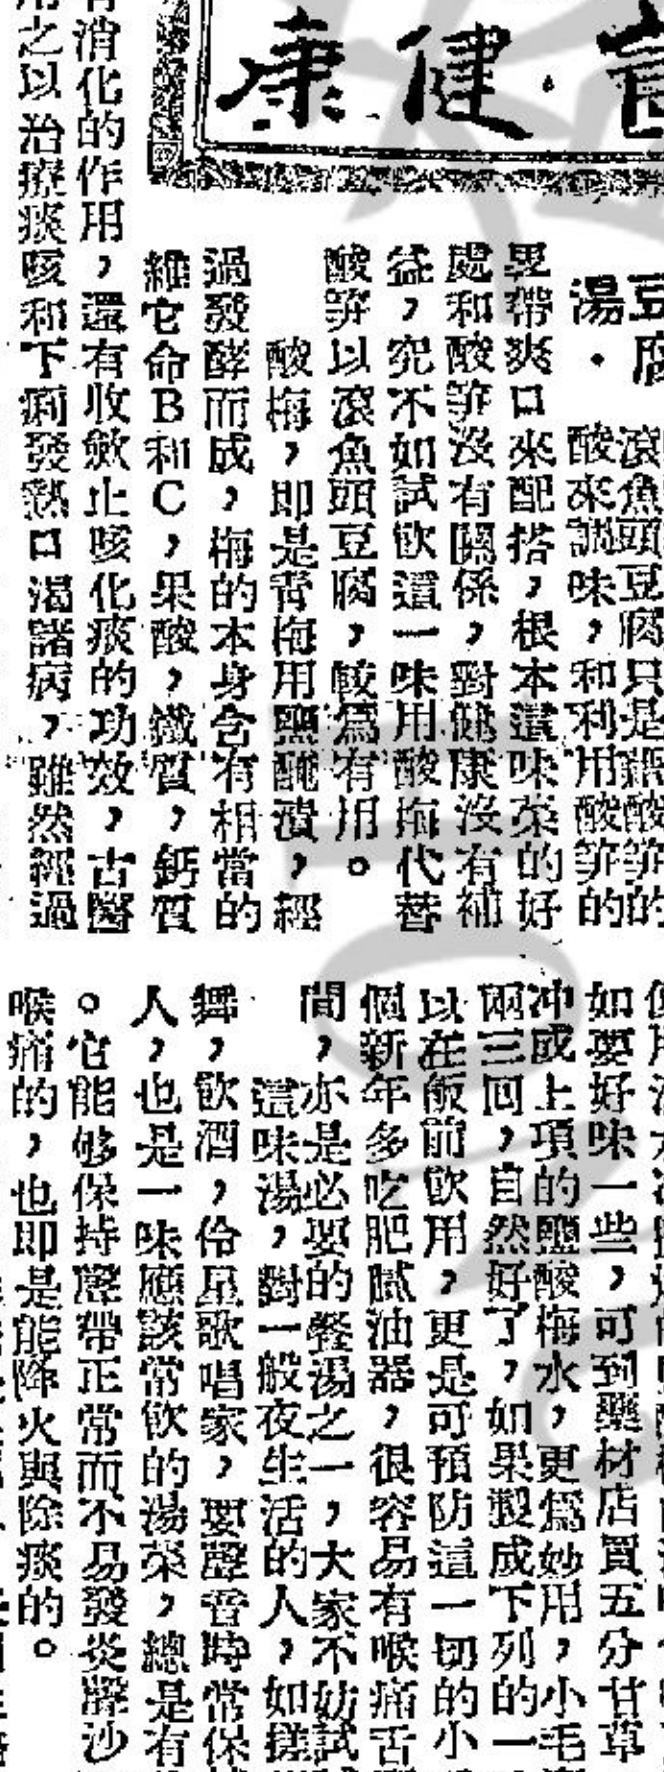 康健·
豆腐
湯·
滾魚頭豆腐只是銀酸笋的
酸來調味，和利用酸笋的
里帶爽口來配搭，根本這味菜的好
處和酸笋沒有關係，對健康沒有補
益，究不如試飲還一味用酸梅代替
酸笋以滾魚頭豆腐，較爲有用。
酸梅，即是靑梅用鹽醃漬，經
過發酵而成，梅的本身含有相當的
維它命B和C，果酸，鐵質，鈣質
消化的作用，還有收斂止咳化痰的功效，古醫
用之以治療痰咳和下痢發熱口渴諸病，雖然經過
如要好味一些，可到藥材店買五分甘草
冲或上項的鹽酸梅水，更爲妙用，小毛
兩三回，自然好了，如果製成下列的一
以在飯前飲用，更是可預防這一切的小
個新年多吃肥膩油器，很容易有喉痛舌
間，亦是必要的餐湯之一，大家不妨試
這味湯，對一般夜生活的人，如搓
舞，飲酒，伶星歌唱家，要聲音時常保
人，也是一味應該常飲的湯菜，總是有
。它能够保持聲帶正常而不易發炎聲沙
喉痛的，也即是能降火與除痰的。